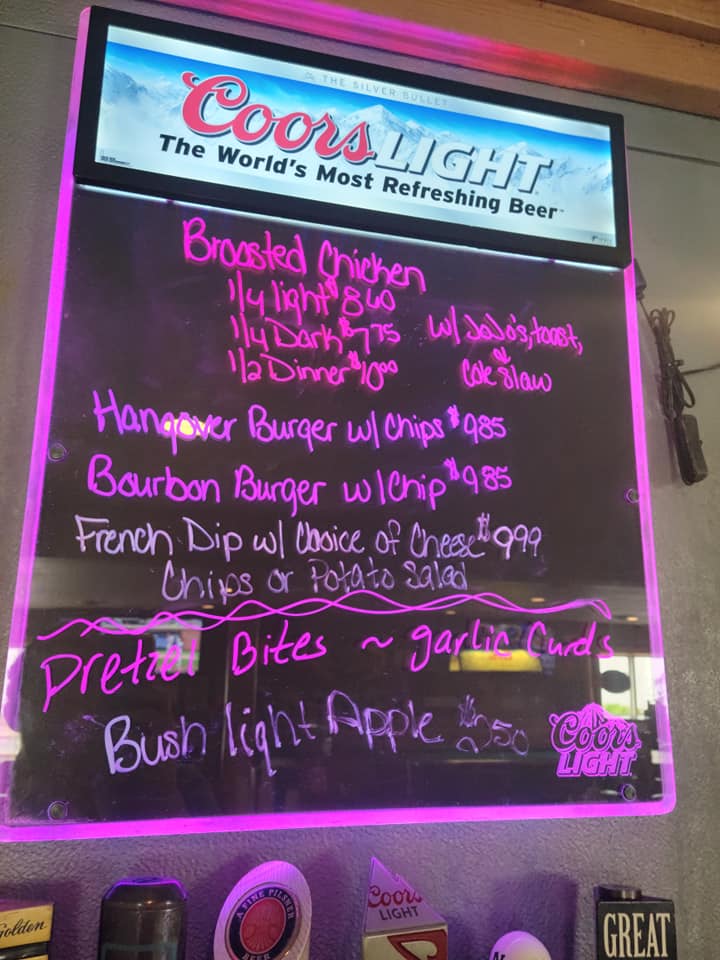 THE SILVER BULLET
Coors LIGHT
The World's Most Refreshing Beer
Broasted Chicken
1/4 light $8.60
1/4 Dark $7.75 w/ JoJo's, toast,
1/2 Dinner $10.00 or Cole Slaw
Hangover Burger w/ Chips $9.85
Bourbon Burger w/ Chip $9.85
French Dip w/ Choice of Cheese $9.99
Chips or Potato Salad
Pretzel Bites ~ garlic Curds
Bush light Apple
Coors
LIGHT
Golden
A FINE PILSNER
BEER
Coors
LIGHT
GREAT